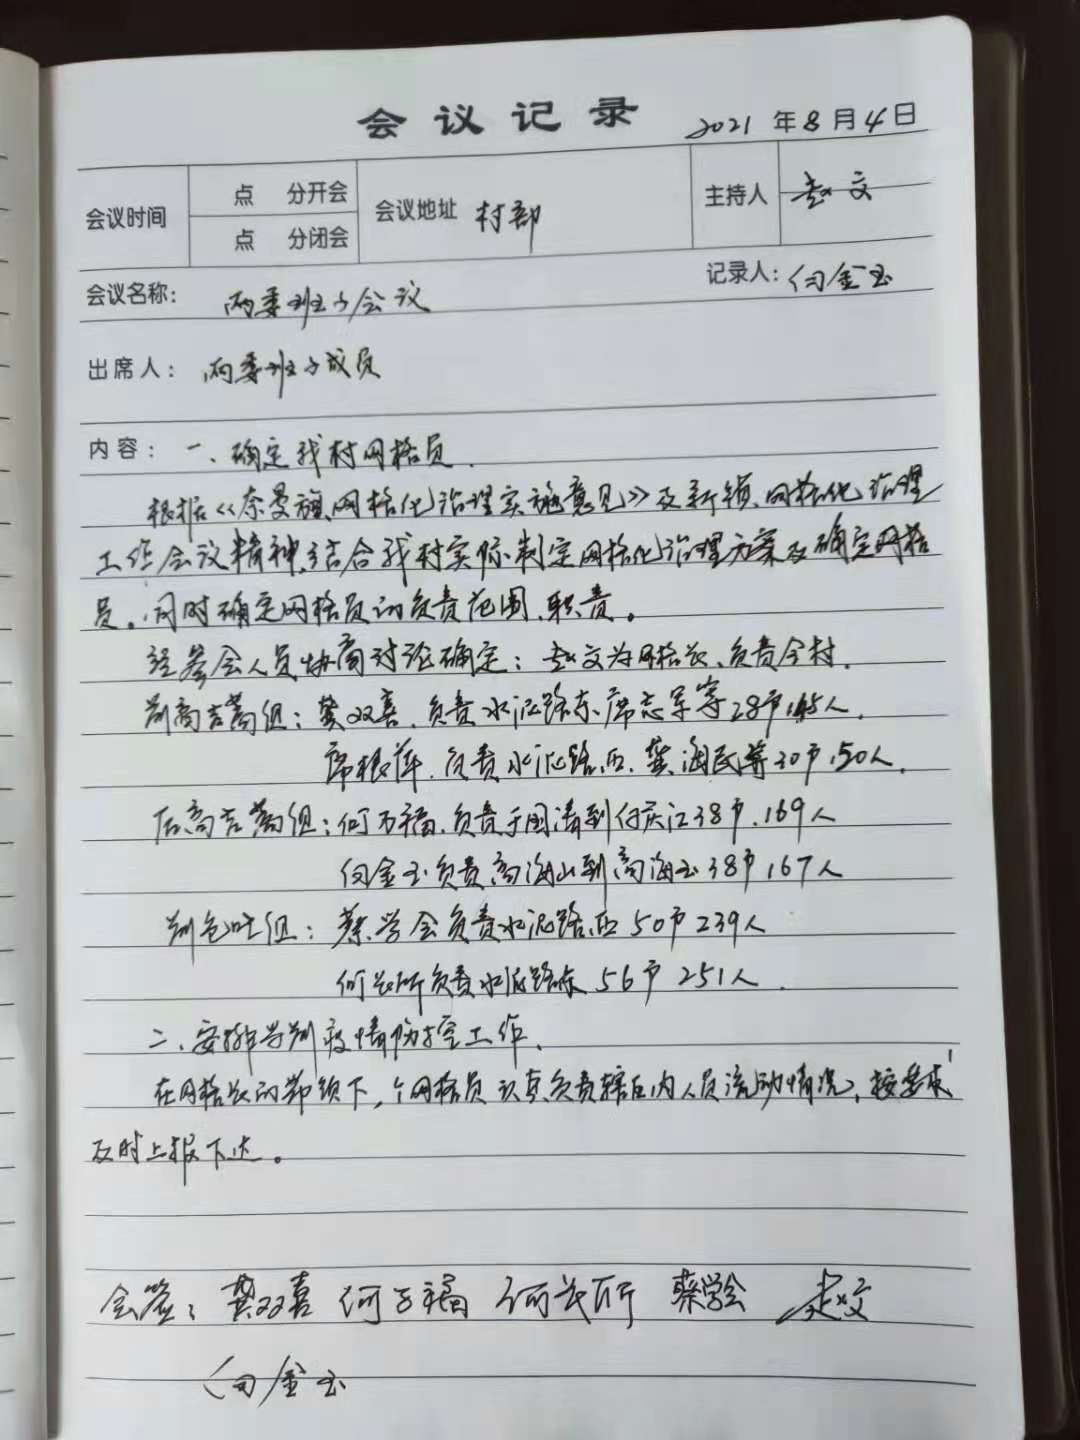 会议记录 2021年8月4日
会议时间 点 分开会 会议地址 村部 主持人 赵文
点 分闭会
会议名称: 两委班子会议 记录人: 何金玉
出席人: 两委班子成员
内容: 一、确定我村网格员.
根据《奈曼旗网格化治理实施意见》及新镇网格化治理
工作会议精神,结合我村实际制定网格化治理方案及确定网格
员。同时确定网格员的负责范围、职责。
经参会人员协商讨论确定:赵文为网格长、负责全村.
前高吉蒿组:龚双喜.负责水泥路东.席志军等28户,145人.
席根萍.负责水泥路西.龚海民等30户,150人.
后高吉蒿组:何万福.负责于国清到何庆江38户.169人
何金玉负责高海山到高海玉38户167人
前包吐组:蔡学会负责水泥路西50户239人
何长所负责水泥路东56户251人.
二、安排当前疫情防控工作.
在网格长的带领下,个网格员认真负责辖区内人员流动情况,按要求
及时上报下达。
会签:龚双喜 何万福 何长所 蔡学会 赵文
何金玉